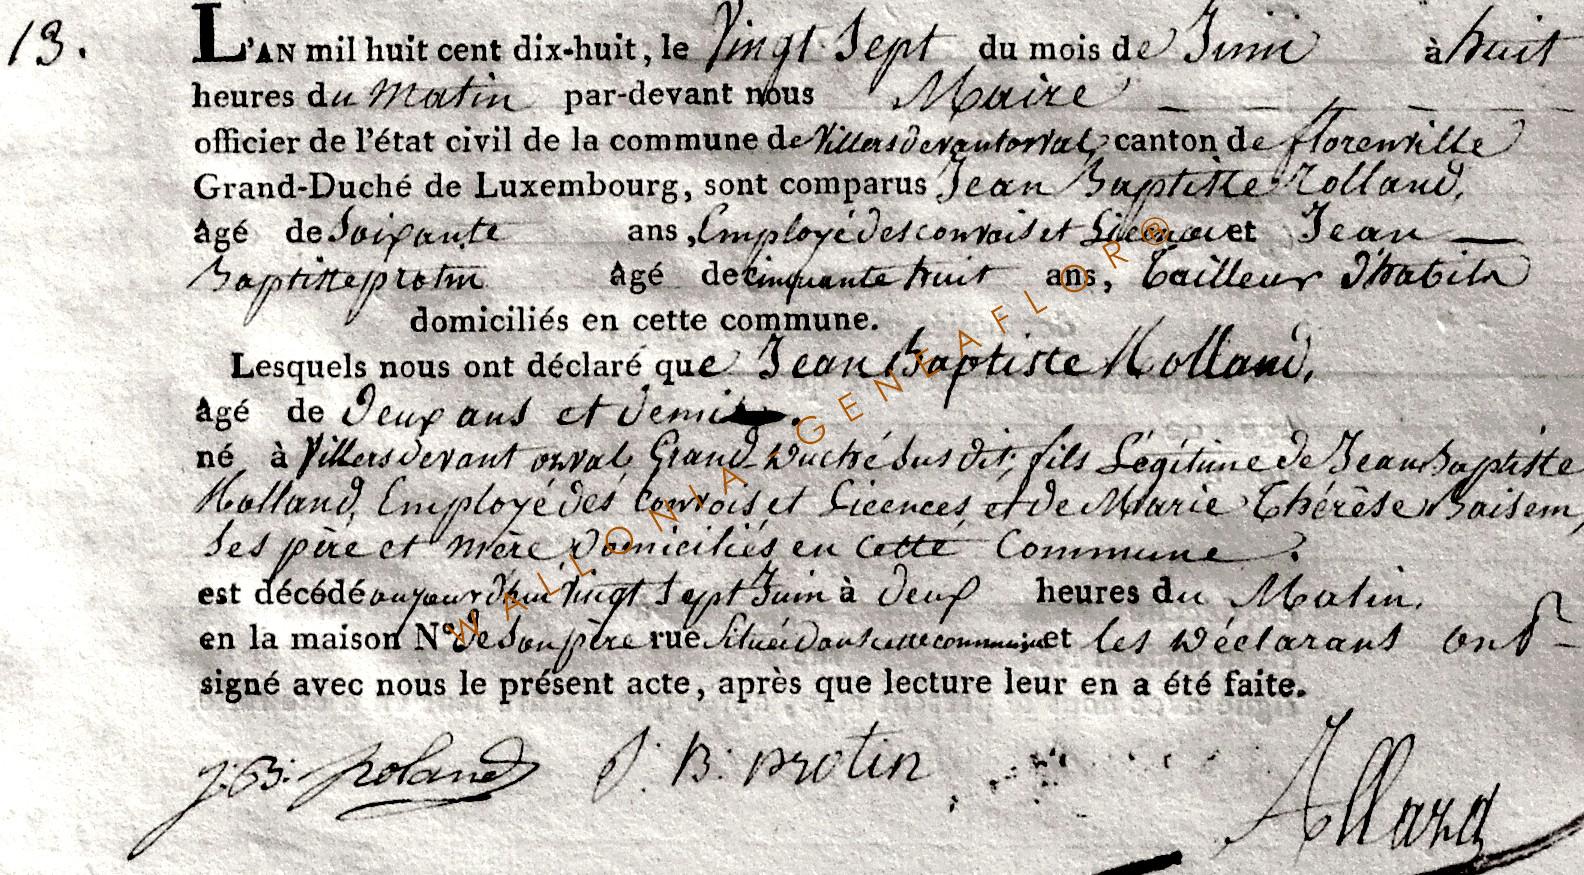 13.
L'AN mil huit cent dix-huit, le Vingt Sept du mois de Juin à huit
heures du Matin par-devant nous Maire
officier de l'état civil de la commune de Villersdevantorval, canton de florenville
Grand-Duché de Luxembourg, sont comparus Jean Baptiste Rolland,
âgé de Soixante ans, Employé des convois et Licences et Jean
Baptiste protin âgé de cinquante huit ans, Tailleur d'habits
domiciliés en cette commune.
Lesquels nous ont déclaré que Jean Baptiste Rolland,
âgé de Deux ans et demi.
né à Villersdevant orval Grand Duché susdit, fils Légitime de Jean Baptiste
Rolland, Employé des convois et Licences, et de Marie Thérèse Baisem,
Ses père et mère Domiciliés en cette Commune.
est décédé aujourd'hui Vingt Sept Juin à deux heures du Matin,
en la maison N° de son père rue Située dans cette commune et les Déclarans ont
signé avec nous le présent acte, après que lecture leur en a été faite.
J:B: Roland J: B: protin
Allard
WALLONIA-GENEAFLOR®